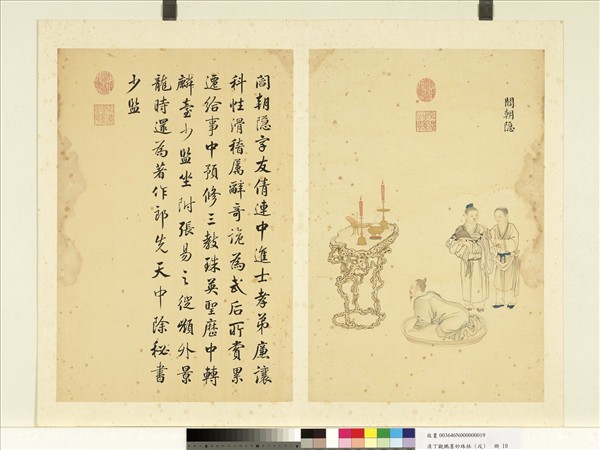 閻朝隐
閻朝隐字友倩連中進士孝弟廉讓
科性滑稽属辭奇詭為武后所賞累
遷給事中預修三教珠英聖曆中轉
麟臺少監坐附張易之徙嶺外景
龍時還為著作郎先天中除秘書
少監
故畫 003646N000000019
冊 10